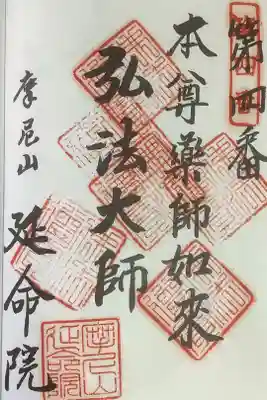 第四番
本尊薬師如来
弘法大師
摩尼山 延命院